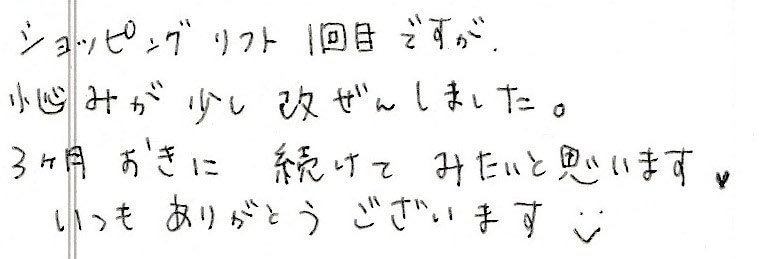 ショッピングリフト 1回目ですが.
悩みが少し改ぜんしました。
3ヶ月おきに 続けてみたいと思います♥
いつもありがとうございます